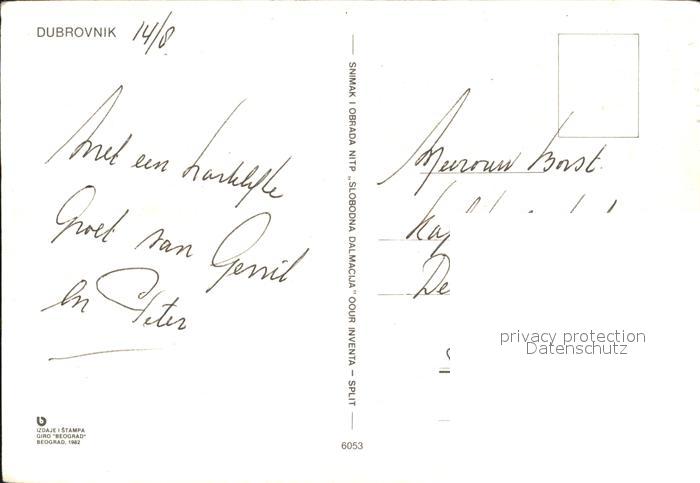 DUBROVNIK 14/8
Met een hartelijke
Groet van Gerrit
en Peter
IZDAJE I ŠTAMPA
GIRO "BEOGRAD"
BEOGRAD, 1982
SNIMAK I OBRADA NITP „SLOBODNA DALMACIJA" OOUR INVENTA — SPLIT
6053
Mevrouw Borst.
De
privacy protection
Datenschutz